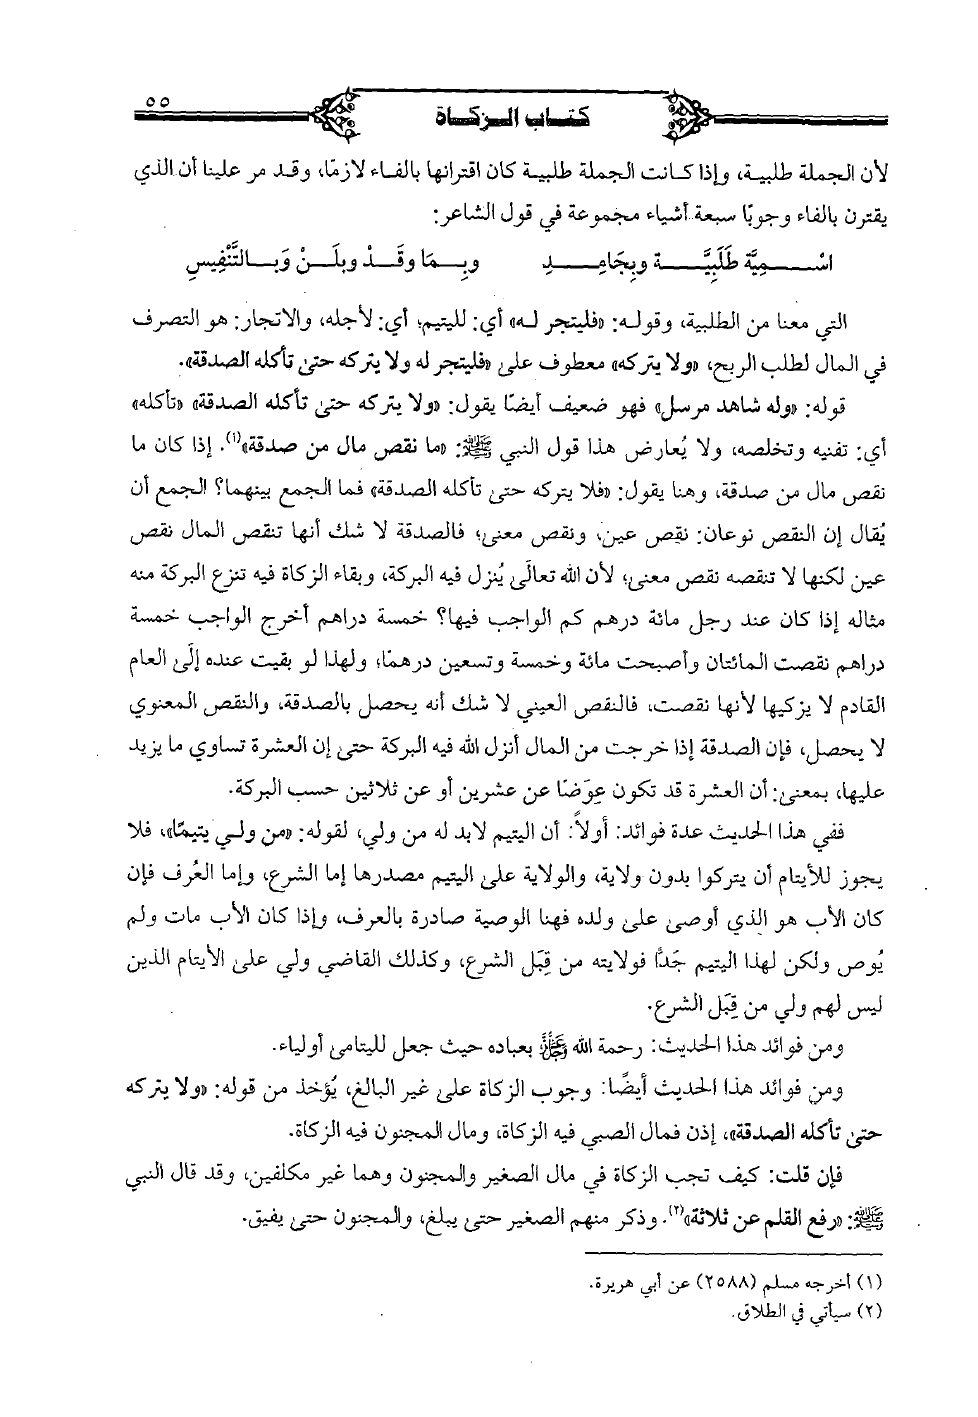 ٥٥
كتاب الزكاة
لأن الجملة طلبية، وإذا كانت الجملة طلبية كان اقترانها بالفاء لازمًا، وقد مر علينا أن الذي
يقترن بالفاء وجوبًا سبعة أشياء مجموعة في قول الشاعر:
اسْمِيَّة طَلَبِيَّة وبِجَامِد وبِمَا وقَدْ وبلَنْ وَبِالتَّنْفِيسِ
التي معنا من الطلبية، وقوله: «فليتجر له» أي: لليتيم؛ أي: لأجله، والاتجار: هو التصرف
في المال لطلب الربح، «ولا يتركه» معطوف على «فليتجر له ولا يتركه حتى تأكله الصدقة».
قوله: «وله شاهد مرسل» فهو ضعيف أيضًا يقول: «ولا يتركه حتى تأكله الصدقة» «تأكله»
أي: تفنيه وتخلصه، ولا يُعارض هذا قول النبي ﷺ: «ما نقص مال من صدقة»(١). إذا كان ما
نقص مال من صدقة، وهنا يقول: «فلا يتركه حتى تأكله الصدقة» فما الجمع بينهما؟ الجمع أن
يُقال إن النقص نوعان: نقص عين، ونقص معنى؛ فالصدقة لا شك أنها تنقص المال نقص
عين لكنها لا تنقصه نقص معنى؛ لأن الله تعالى يُنزل فيه البركة، وبقاء الزكاة فيه تنزع البركة منه
مثاله إذا كان عند رجل مائة درهم كم الواجب فيها؟ خمسة دراهم أخرج الواجب خمسة
دراهم نقصت المائتان وأصبحت مائة وخمسة وتسعين درهمًا؛ ولهذا لو بقيت عنده إلى العام
القادم لا يزكيها لأنها نقصت، فالنقص العيني لا شك أنه يحصل بالصدقة، والنقص المعنوي
لا يحصل، فإن الصدقة إذا خرجت من المال أنزل الله فيه البركة حتى إن العشرة تساوي ما يزيد
عليها، بمعنى: أن العشرة قد تكون عِوَضًا عن عشرين أو عن ثلاثين حسب البركة.
ففي هذا الحديث عدة فوائد: أولاً: أن اليتيم لابد له من ولي، لقوله: «من ولي يتيمًا»، فلا
يجوز للأيتام أن يتركوا بدون ولاية، والولاية على اليتيم مصدرها إما الشرع، وإما العُرف فإن
كان الأب هو الذي أوصى على ولده فهنا الوصية صادرة بالعرف، وإذا كان الأب مات ولم
يُوص ولكن لهذا اليتيم جَدًّا فولايته من قِبَل الشرع، وكذلك القاضي ولي على الأيتام الذين
ليس لهم ولي من قِبَل الشرع.
ومن فوائد هذا الحديث: رحمة الله ﷻ بعباده حيث جعل لليتامى أولياء.
ومن فوائد هذا الحديث أيضًا: وجوب الزكاة على غير البالغ، يُؤخذ من قوله: «ولا يتركه
حتى تأكله الصدقة»، إذن فمال الصبي فيه الزكاة، ومال المجنون فيه الزكاة.
فإن قلت: كيف تجب الزكاة في مال الصغير والمجنون وهما غير مكلفين، وقد قال النبي
ﷺ: «رفع القلم عن ثلاثة»(٢). وذكر منهم الصغير حتى يبلغ، والمجنون حتى يفيق.
(١) أخرجه مسلم (٢٥٨٨) عن أبي هريرة.
(٢) سيأتي في الطلاق.